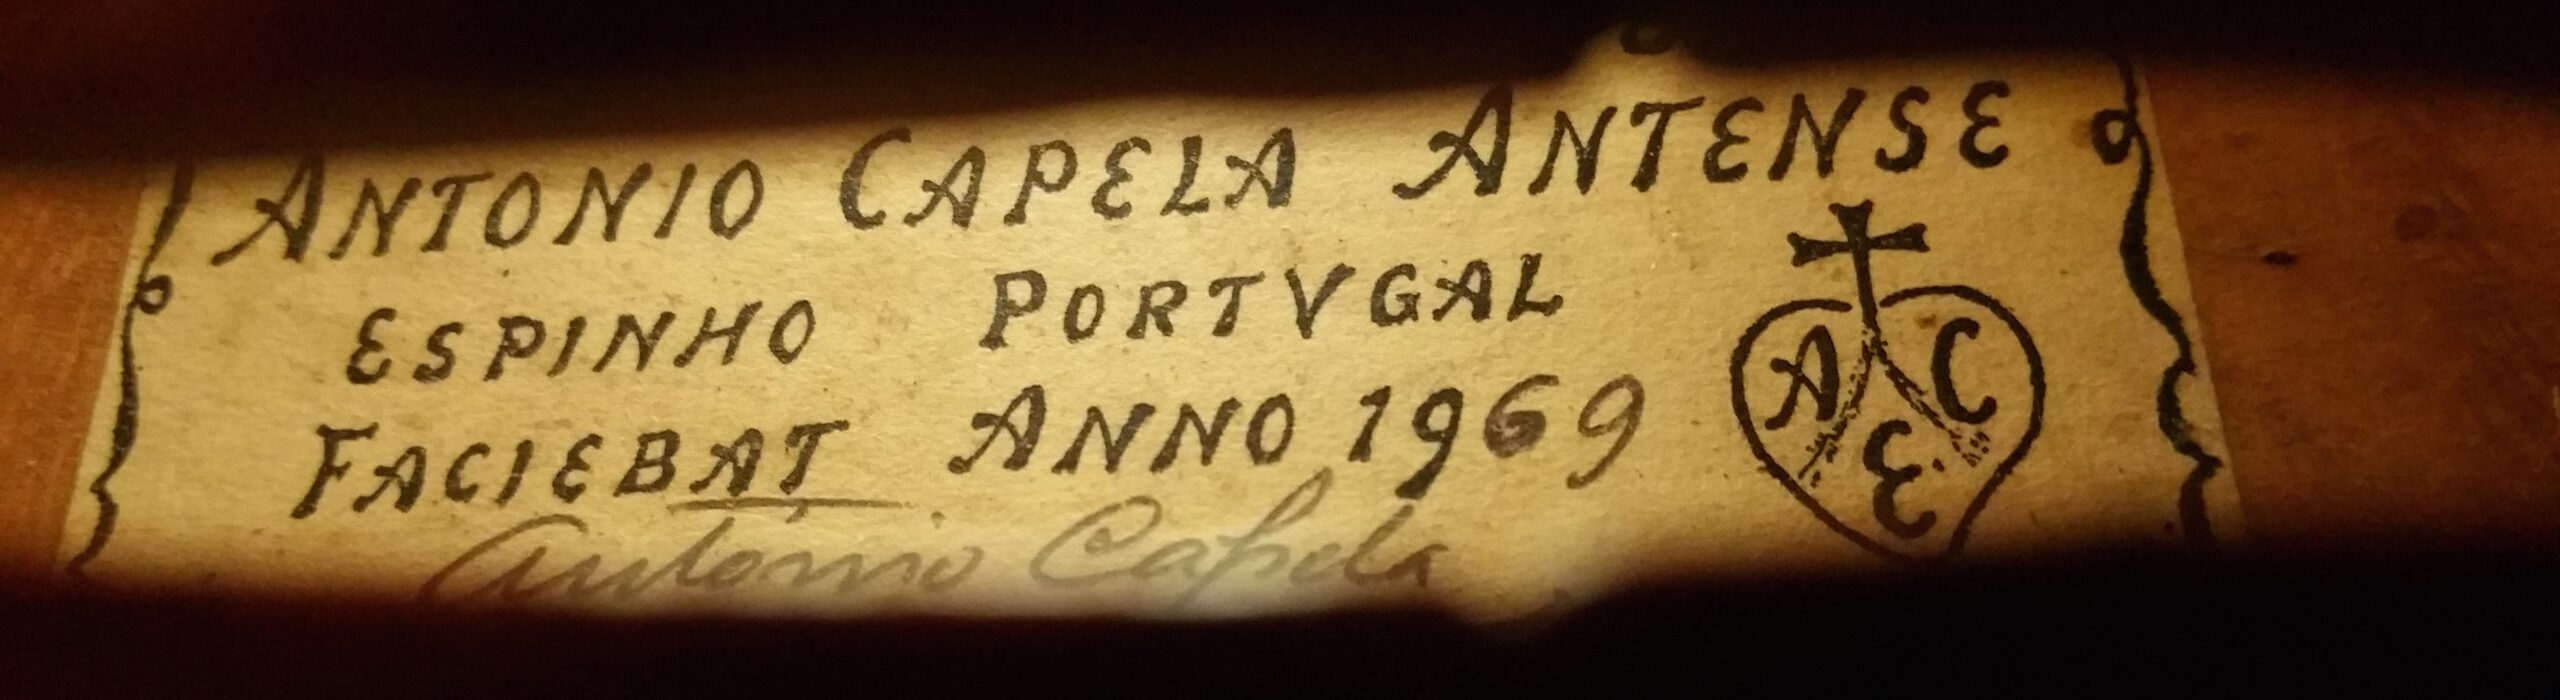 ANTONIO CAPELA ANTENSE
ESPINHO PORTVGAL
FACIEBAT ANNO 1969
António Capela
A C
E